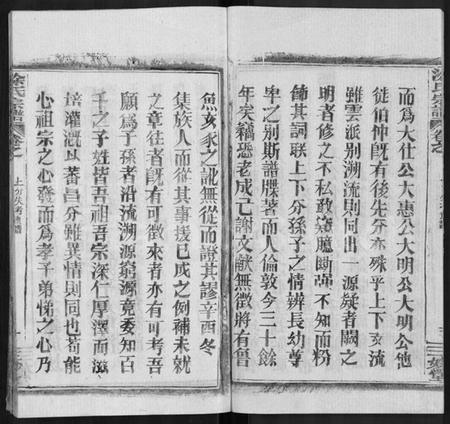 而爲大仕公大惠公大明公大明公他
徙伯仲旣有後先分亦殊乎上下支流
雖雲派別溯流則同出一源疑者闕之
明者修之不私政竊臆斷强不知而粉
飾其詞聯上下分孫子之情辨長幼尊
卑之别斯譜牒著而人倫敦今三十餘
年矣竊恐老成已謝文献無徵將有魯
魚亥豕之訛無從而證其謬辛酉冬
集族人而僉其事援已成之例補未就
之章往者旣有可徵來者亦有可考吾
願爲子孫者沿流溯源窮源竟委知百
千之子姓皆吾祖吾宗深仁厚澤而滋
培灌漑以蕃昌分雖異情則同也苟能
心祖宗之心發而爲孝子弟悌之心乃
涂氏宗譜
卷之